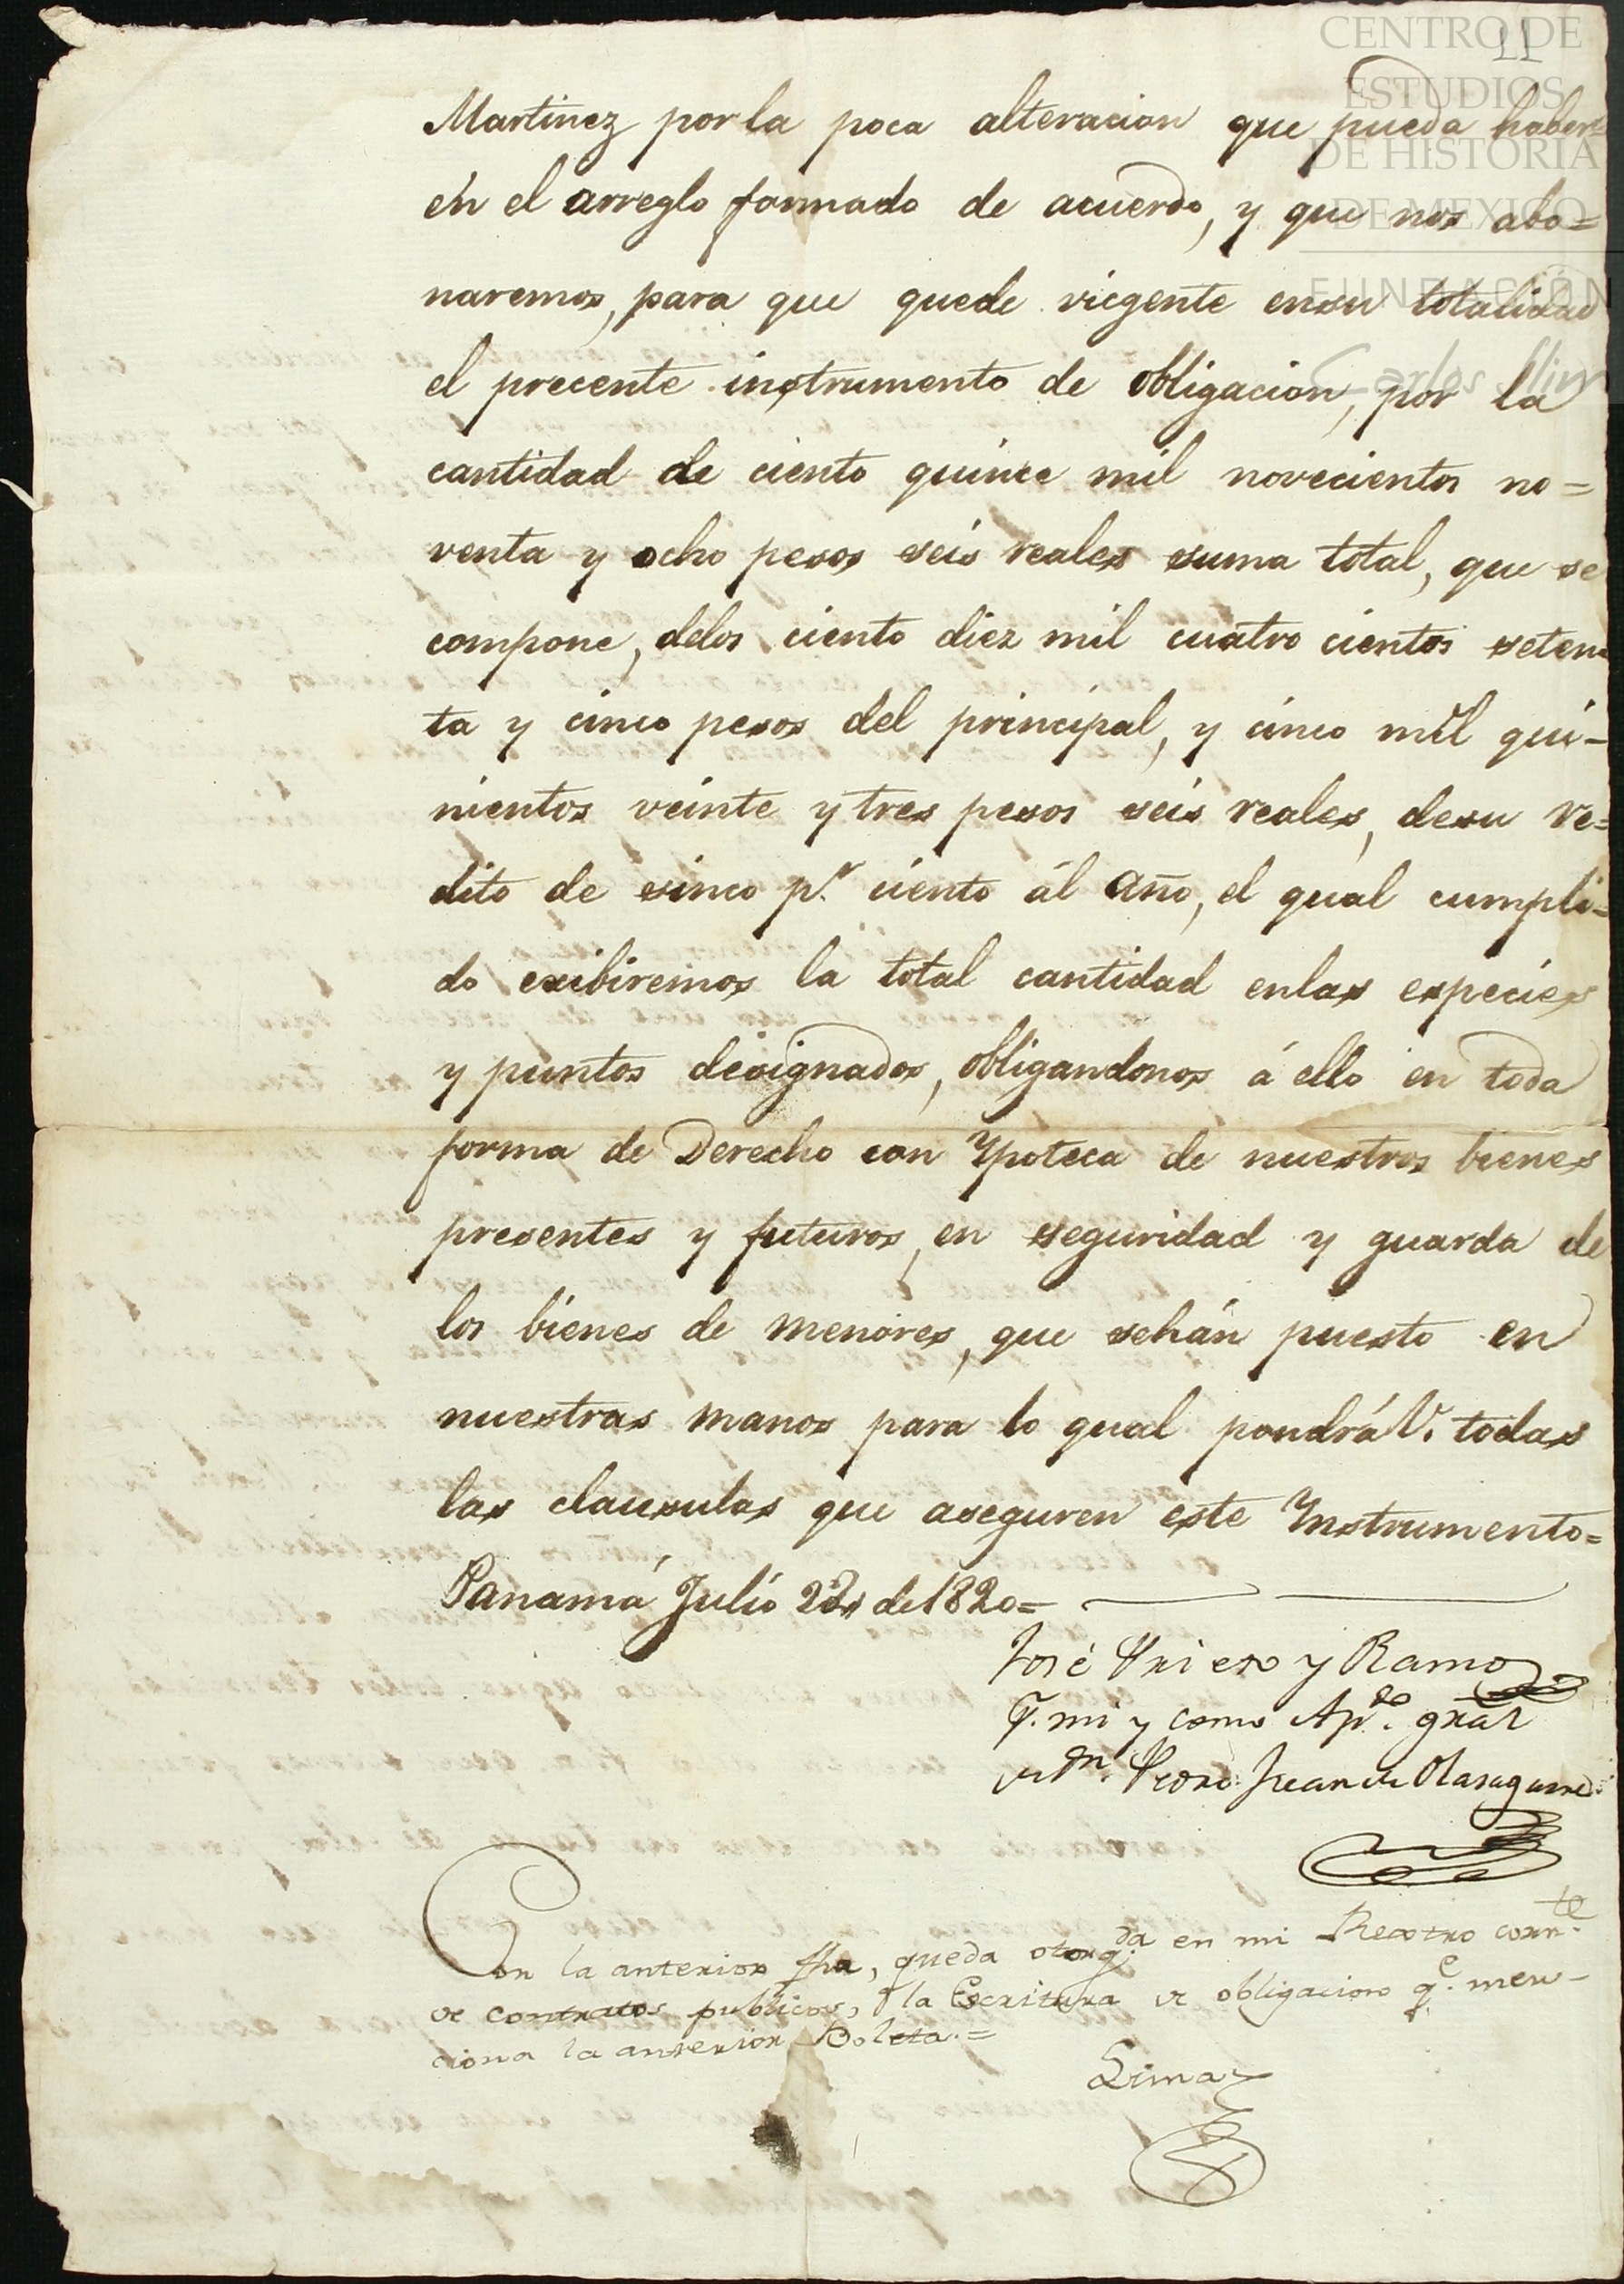 CENTRO DE
ESTUDIOS
DE HISTORIA
DE MEXICO
FUNDACIÓN
Carlos Slim
11
Martinez por la poca alteracion que pueda haber
én el arreglo formado de acuerdo, y que nos abo=
naremos, para que quede viegente ensu totalidad
el precente instrumento de obligacion, por la
cantidad de ciento quince mil novecientos no=
venta y ocho pesos seis reales suma total, que se
compone, delos ciento diez mil cuatro cientos seten
ta y cinco pesos del principal, y cinco mil qui-
nientos veinte y tres pesos seis reales, desu re=
dito de cinco p.r ciento ál año, el qual cumpli=
do exibiremos la total cantidad enlas especies
y puntos designados, obligandonos á ello en toda
forma de Derecho con Ypoteca de nuestros bienes
presentes y futuros, en seguridad y guarda de
los bienes de menores, que sehán puesto en
nuestras manos para lo qual pondrá V. todas
las clausulas que aseguren este Ynstrumento=
Panamá Julio de 1820=
José y Ramos
P. mi y como Ap.do gràl
de Dn. Pedro Juan de Olasagarre
Con la anterior fha, queda otorg.da en mi Rexstro corr.te
de contratos publicos, la Escritura de obligacion q.e men-
ciona la anterior Boleta.=
Lima